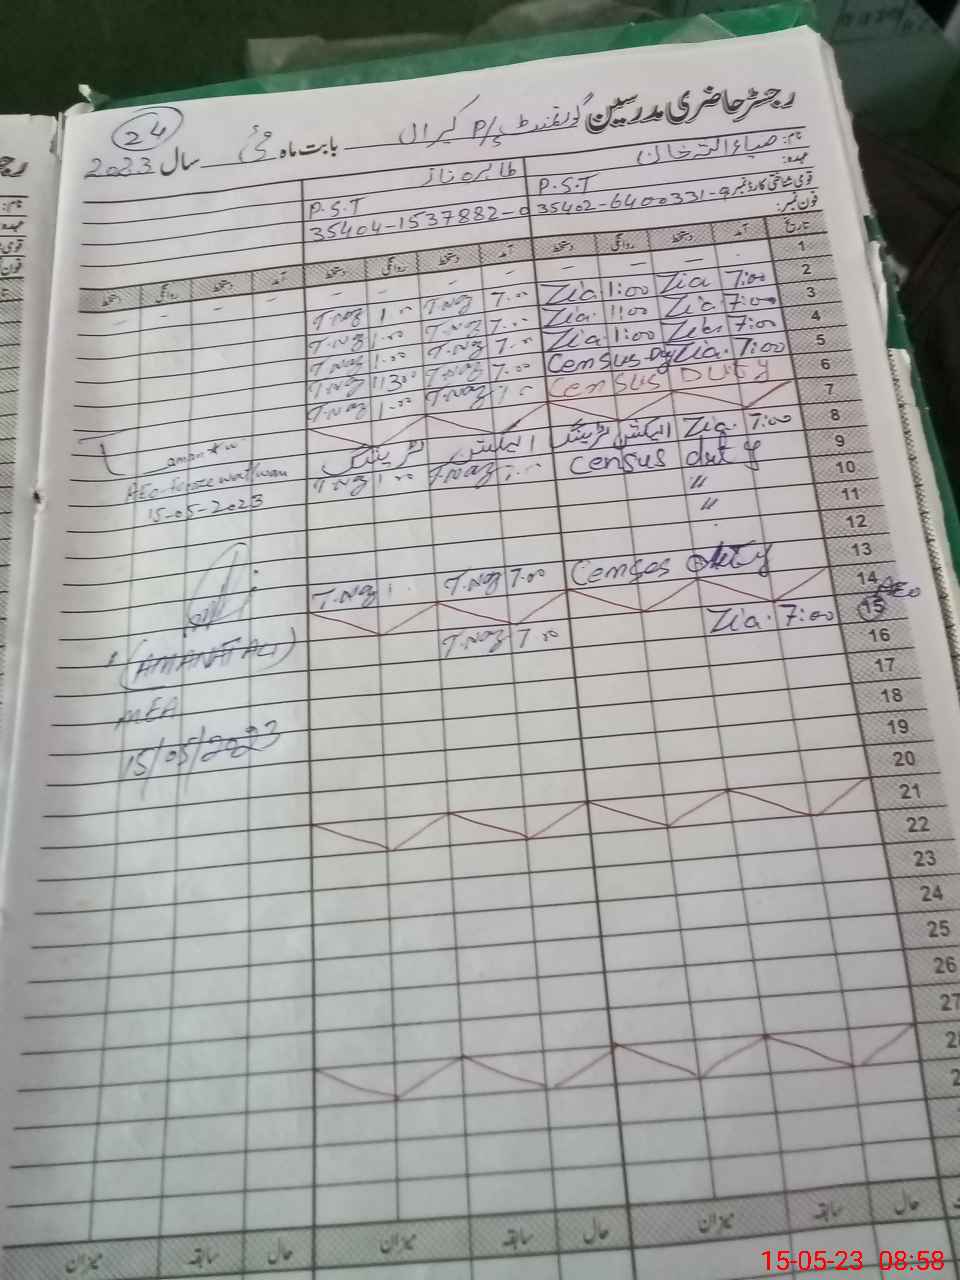 رجسٹر حاضری مدرسین گورنمنٹ P/S کیرال بابت ماہ مئی سال 2023
24
نام: ضیاء اللہ خان طاہرہ ناز
عہدہ: P.S.T P.S.T
قومی شناختی کارڈ نمبر 35402-6400331-9 35404-1537882-0
فون نمبر:
تاریخ آمد دستخط روانگی دستخط آمد دستخط روانگی دستخط آمد دستخط روانگی دستخط
1 - - - - - - - - - - - -
2 7:00 Zia 1:00 Zia 7:00 T.Naz 1:00 T.Naz
3 7:00 Zia 1:00 Zia 7:00 T.Naz 1:00 T.Naz
4 7:00 Zia 1:00 Zia 7:00 T.Naz 1:00 T.Naz
5 7:00 Zia Census Duty 7:00 T.Naz 11:30 T.Naz
6 Census Duty 7:00 T.Naz 1:00 T.Naz
7
8 7:00 Zia. الیکشن ٹریننگ الیکشن ٹریننگ
9 Census duty 7:00 T.Naz 1:00 T.Naz
10 "
11 "
12
13 Census Duty 7:00 T.Naz 1: T.Naz
14
15 AEO 7:00 Zia. 7:00 T.Naz
AEO
15-05-2023
(AMANAT ALI)
MEA
15/05/2023
16
17
18
19
20
21
22
23
24
25
26
27
28
حال سابقہ میزان حال سابقہ میزان حال سابقہ میزان
15-05-23 08:58